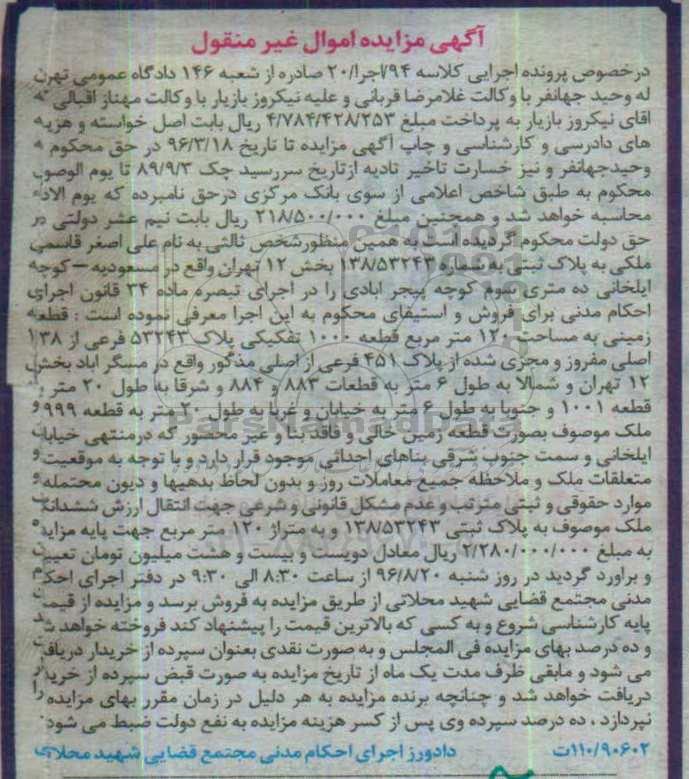 آگهی مزایده اموال غیر منقول
درخصوص پرونده اجرایی کلاسه ۹۴/اجرا/۲۰ صادره از شعبه ۱۴۶ دادگاه عمومی تهران
له وحید جهانفر با وکالت غلامرضا قربانی و علیه نیکروز بازیار با وکالت مهناز اقبالی که
اقای نیکروز بازیار به پرداخت مبلغ ۴/۷۸۴/۴۲۸/۲۵۳ ریال بابت اصل خواسته و هزینه
های دادرسی و کارشناسی و چاپ آگهی مزایده تا تاریخ ۹۶/۳/۱۸ در حق محکوم
وحیدجهانفر و نیز خسارت تاخیر تادیه ازتاریخ سررسید چک ۸۹/۹/۳ تا یوم الوصول
محکوم به طبق شاخص اعلامی از سوی بانک مرکزی درحق نامبرده که یوم الاداء
محاسبه خواهد شد و همچنین مبلغ ۲۱۸/۵۰۰/۰۰۰ ریال بابت نیم عشر دولتی در
حق دولت محکوم گردیده است به همین منظورشخص ثالثی به نام علی اصغر قاسمی
ملکی به پلاک ثبتی به شماره ۱۳۸/۵۳۲۴۳ بخش ۱۲ تهران واقع در مسعودیه – کوچه
ایلخانی ده متری سوم کوچه پیجر ابادی را در اجرای تبصره ماده ۳۴ قانون اجرای
احکام مدنی برای فروش و استیفای محکوم به این اجرا معرفی نموده است : قطعه
زمینی به مساحت ۱۲۰ متر مربع قطعه ۱۰۰۰ تفکیکی پلاک ۵۳۲۴۳ فرعی از ۱۳۸
اصلی مفروز و مجزی شده از پلاک ۴۵۱ فرعی از اصلی مذکور واقع در مسگر اباد بخش
۱۲ تهران و شمالا به طول ۶ متر به قطعات ۸۸۳ و ۸۸۴ و شرقا به طول ۲۰ متر به
قطعه ۱۰۰۱ و جنوبا به طول ۶ متر به خیابان و غربا به طول ۲۰ متر به قطعه ۹۹۹ و
ملک موصوف بصورت قطعه زمین خالی و فاقد بنا و غیر محصور که درمنتهی خیابان
ایلخانی و سمت جنوب شرقی بناهای احداثی موجود قرار دارد و با توجه به موقعیت و
متعلقات ملک و ملاحظه جمیع معاملات روز و بدون لحاظ بدهیها و دیون محتمله
موارد حقوقی و ثبتی مترتب و عدم مشکل قانونی و شرعی جهت انتقال ارزش ششدانگ
ملک موصوف به پلاک ثبتی ۱۳۸/۵۳۲۴۳ و به متراژ ۱۲۰ متر مربع جهت پایه مزایده
به مبلغ ۲/۲۸۰/۰۰۰/۰۰۰ ریال معادل دویست و بیست و هشت میلیون تومان تعیین
و براورد گردید در روز شنبه ۹۶/۸/۲۰ از ساعت ۸:۳۰ الی ۹:۳۰ در دفتر اجرای احکام
مدنی مجتمع قضایی شهید محلاتی از طریق مزایده به فروش برسد و مزایده از قیمت
پایه کارشناسی شروع و به کسی که بالاترین قیمت را پیشنهاد کند فروخته خواهد شد
و ده درصد بهای مزایده فی المجلس و به صورت نقدی بعنوان سپرده از خریدار دریافت
می شود و مابقی ظرف مدت یک ماه از تاریخ مزایده به صورت قبض سپرده از خریدار
دریافت خواهد شد و چنانچه برنده مزایده به هر دلیل در زمان مقرر بهای مزایده را
نپردازد ، ده درصد سپرده وی پس از کسر هزینه مزایده به نفع دولت ضبط می شود.
۱۱۰/۹۰۶۰۲ت دادورز اجرای احکام مدنی مجتمع قضایی شهید محلاتی
ParsNamadData